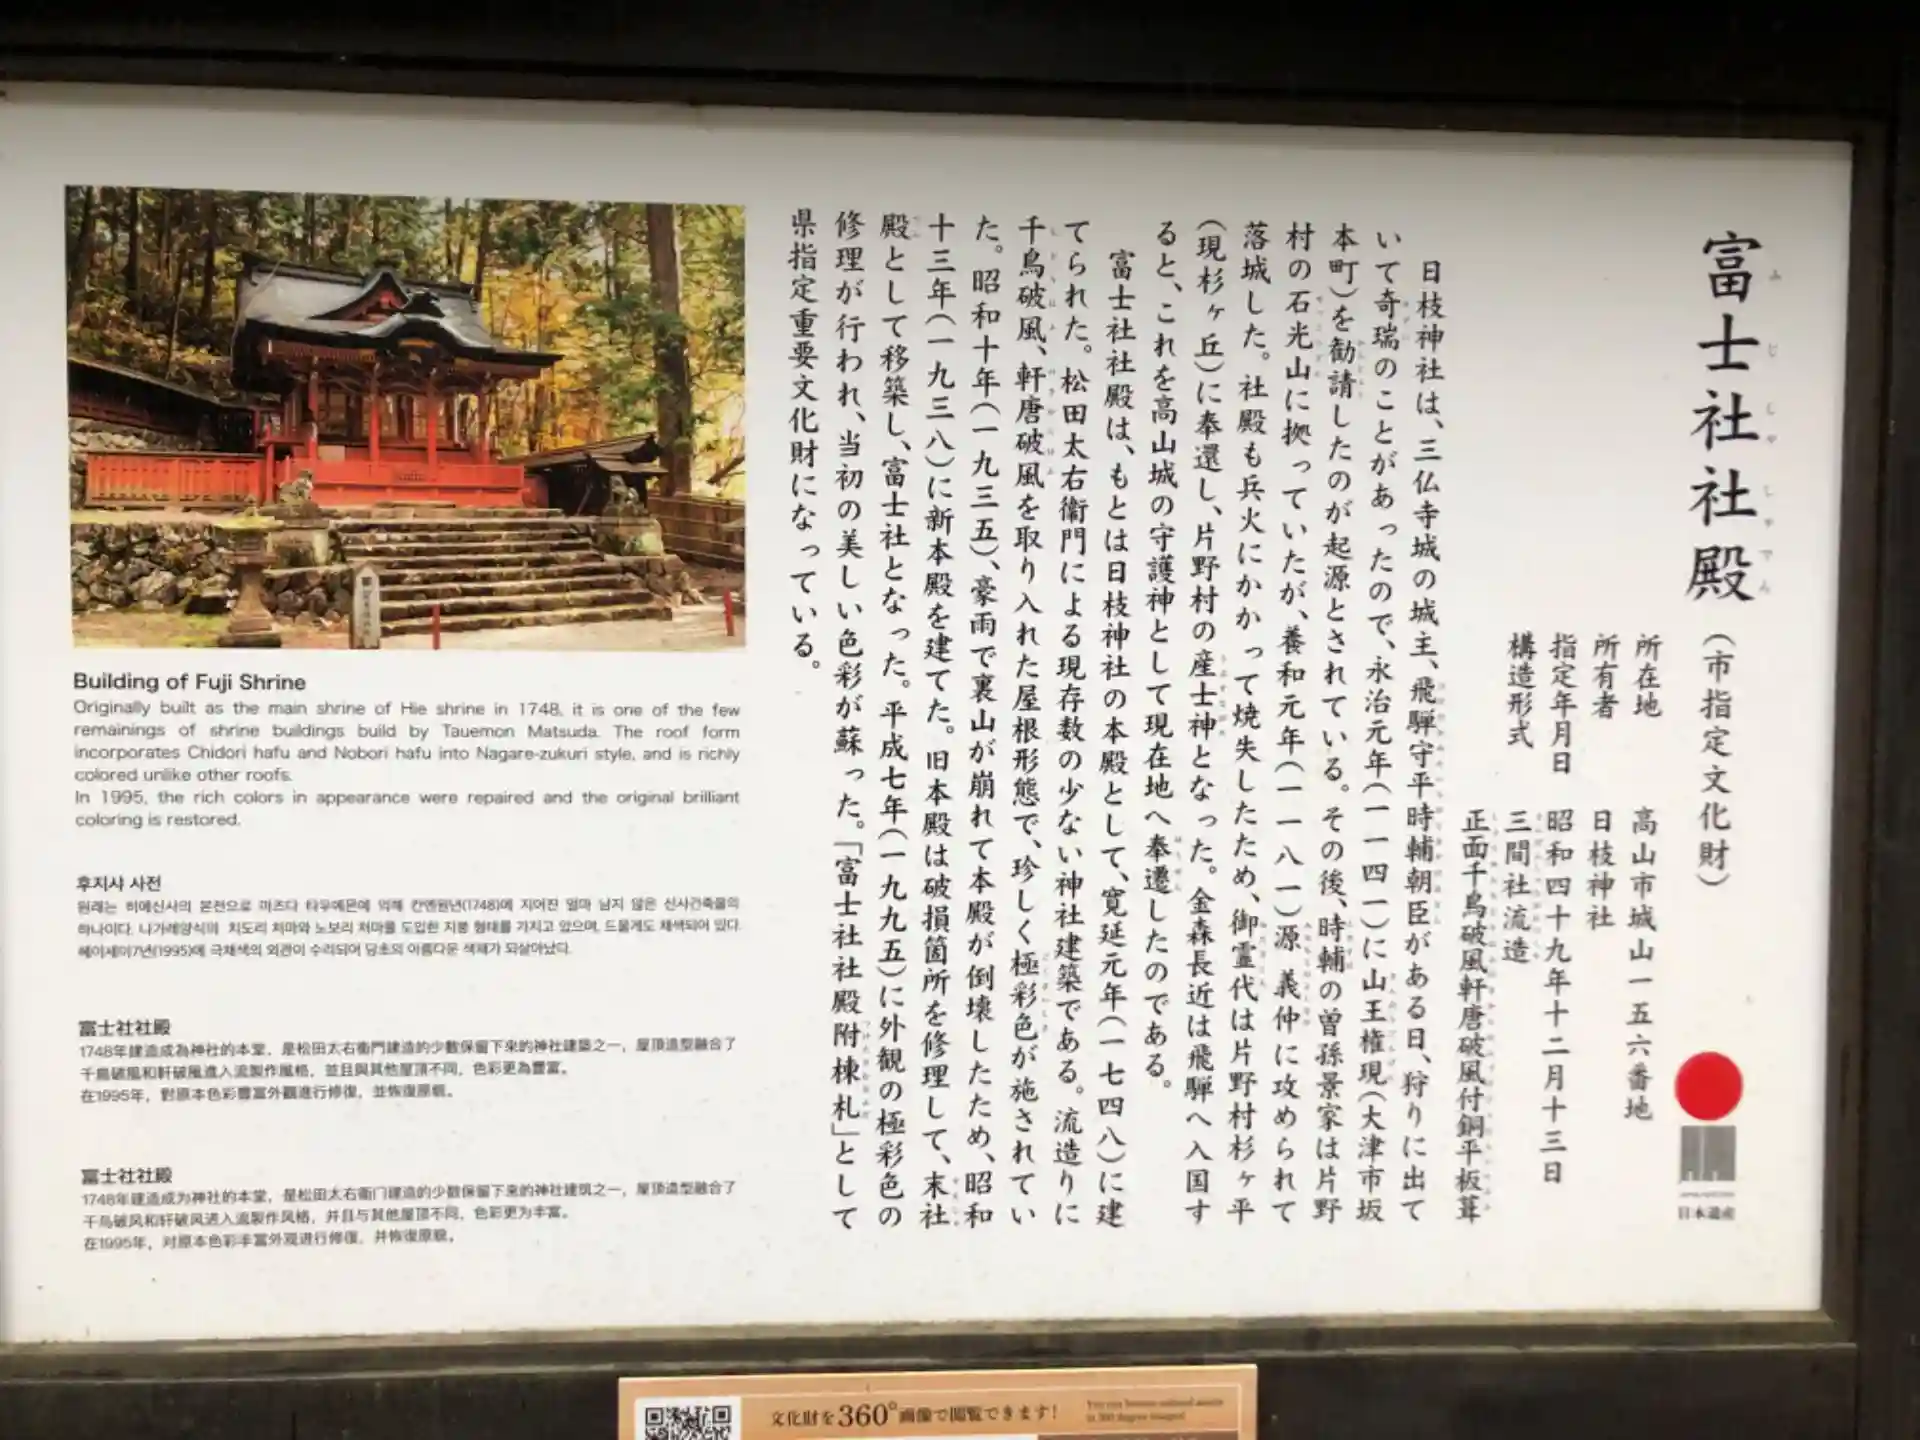 富士社社殿(市指定文化財)
ふじしゃしゃでん
所在地 高山市城山一五六番地
所有者 日枝神社
指定年月日 昭和四十九年十二月十三日
構造形式 三間社流造
正面千鳥破風軒唐破風付銅平板葺
日枝神社は、三仏寺城の城主、飛騨守平時輔朝臣がある日、狩りに出て
いて奇瑞のことがあったので、永治元年(一一四一)に山王権現(大津市坂
本町)を勧請したのが起源とされている。その後、時輔の曽孫景家は片野
村の石光山に拠っていたが、養和元年(一一八一)源義仲に攻められて
落城した。社殿も兵火にかかって焼失したため、御霊代は片野村杉ヶ平
(現杉ヶ丘)に奉還し、片野村の産土神となった。金森長近は飛騨へ入国す
ると、これを高山城の守護神として現在地へ奉遷したのである。
富士社社殿は、もとは日枝神社の本殿として、寛延元年(一七四八)に建
てられた。松田太右衛門による現存数の少ない神社建築である。流造りに
千鳥破風、軒唐破風を取り入れた屋根形態で、珍しく極彩色が施されてい
た。昭和十年(一九三五)、豪雨で裏山が崩れて本殿が倒壊したため、昭和
十三年(一九三八)に新本殿を建てた。旧本殿は破損箇所を修理して、末社
殿として移築し、富士社となった。平成七年(一九九五)に外観の極彩色の
修理が行われ、当初の美しい色彩が蘇った。「富士社社殿附棟札」として
県指定重要文化財になっている。
日本遺産
Building of Fuji Shrine
Originally built as the main shrine of Hie shrine in 1748, it is one of the few
remainings of shrine buildings build by Tauemon Matsuda. The roof form
incorporates Chidori hafu and Nobori hafu into Nagare-zukuri style, and is richly
colored unlike other roofs.
In 1995, the rich colors in appearance were repaired and the original brilliant
coloring is restored.
후지샤 사전
원래는 히에신사의 본전으로 마츠다 타우에몬에 의해 칸엔원년(1748)에 지어진 얼마 남지 않은 신사건축물의
하나이다. 나가레양식의 치도리 처마와 노보리 처마를 도입한 지붕 형태를 가지고 있으며, 드물게도 채색되어 있다.
헤이세이7년(1995)에 극채색의 외관이 수리되어 당초의 아름다운 색채가 되살아났다.
富士社社殿
1748年建造成為神社的本堂，是松田太右衛門建造的少數保留下來的神社建築之一，屋頂造型融合了
千鳥破風和軒破風進入流製作風格，並且與其他屋頂不同，色彩更為豐富。
在1995年，對原本色彩豐富外觀進行修復，並恢復原貌。
富士社社殿
1748年建造成为神社的本堂，是松田太右衛门建造的少数保留下来的神社建筑之一，屋顶造型融合了
千鸟破风和轩破风进入流製作风格，并且与其他屋顶不同，色彩更为丰富。
在1995年，对原本色彩丰富外观进行修復，并恢復原貌。
文化財を360°画像で閲覧できます!